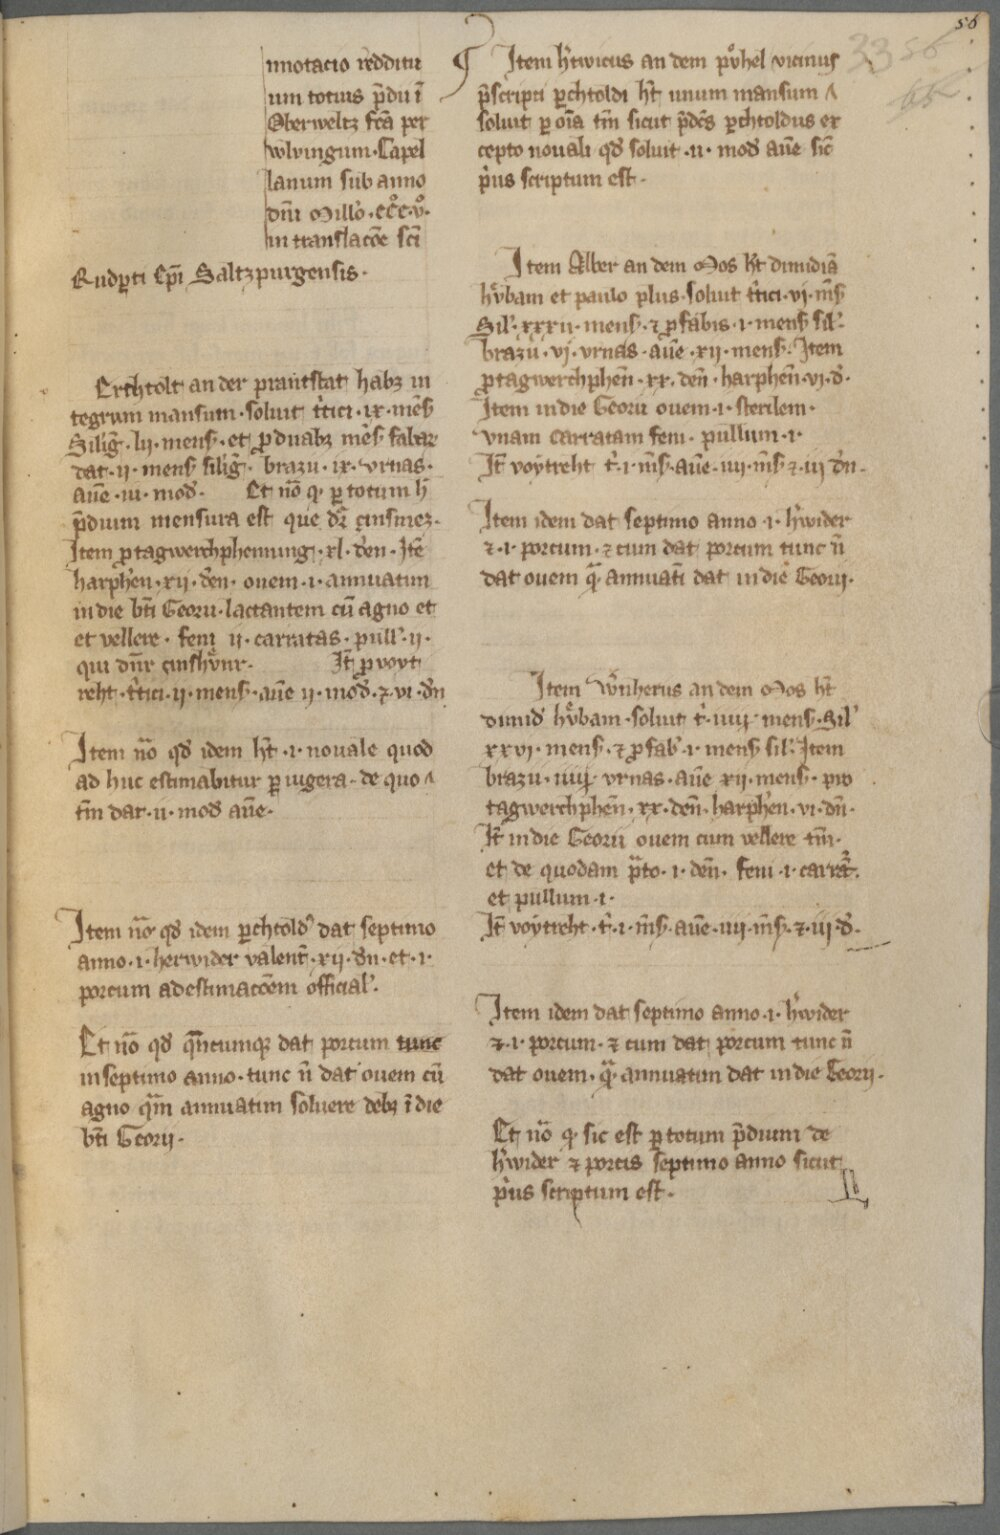 56
33 56
65
nnotacio reddituu
um totius p̄dii ī
Oberweltz fc̄a per
wlvingum · Capel
lanum sub anno
dn̄i Millo · ccc̊ · v̊ ·
in translac̄oe sc̄i
Rudp̄ti Ep̄i Saltzpurgensis ·
Erchtolt an der prantstat habꝫ in
tegrum mansum · soluit t̄tici · ix · mēs̄
Siliḡ · lii · mens̄ · et ꝑ duabꝫ mēs̄ fabar̄
dat · ii · mens̄ siliḡ · brazii · ix · vrnas ·
aūe · iii · mod̄ · Et nō ꝙ ꝑ totum h̄
p̄dium mensura est que dr̄ cinsmez ·
Item ꝑ tagwerchphenning · xl · den̄ · Itē
harphen̄ · xii · den̄ · ouem · i · annuatim
in die bt̄i Georii · lactantem cū agno et
et vellere · feni ii · carratas · pull̄ · ii ·
qui dn̄r cinshv̊nr · It̄ ꝑ voyt
reht · t̄tici · ii · mens̄ · aūe ii · mod̄ · ⁊ vi · dn̄
Item nō qd̄ idem ht̄ · i · nouale quod
ad huc estimabitur ꝑ iugera · de quo
tm̄ dat · ii · mod̄ aūe ·
Item nō qd̄ idem ꝑchtold̄ dat septimo
anno · i · herwider valent̄ · xii · dn̄ · et · i ·
porcum ad estimac̄oem official̄ ·
Et nō qd̄ qn̄cumqꝫ dat porcum tunc
in septimo anno · tunc n̄ dat ouem cū
agno qm̄ annuatim soluere debꝫ ī die
bt̄i Georii ·
¶ Item h̄twicus an dem pv̊hel vicinus
p̄scripti ꝑchtoldi ht̄ unum mansum
soluit ꝑ oīa tm̄ sicut p̄dc̄s ꝑchtoldus ex
cepto nouali qd̄ soluit · ii · mod̄ aūe sic̄
p̄us scriptum est ·
Item Alber an dem Mos ht̄ dimidiā
hv̊bam et paulo plus · soluit t̄tici · vi · m̄s̄
Sil̄ · xxxii · mens̄ · ⁊ ꝓ fabis · i · mens̄ sil̄ ·
brazii · vi · vrnas · aūe · xii · mens̄ · Item
ꝓ tagwerchphen̄ · xx · den̄ · harphen̄ · vi · d̄ ·
Item in die Georii ouem · i · sterilem ·
vnam carratam feni · pullum · i ·
It̄ voytreht t̄ · i · m̄s̄ · aūe · iiii · m̄s̄ · ⁊ · iii dn̄ ·
Item idem dat septimo anno · i · h̄wider
⁊ · i · porcum · ⁊ cum dat porcum tunc n̄
dat ouem qꝫ annuatī dat in die Georii ·
Item Wn̄herus an dem Mos ht̄
dimid̄ hv̊bam · soluit t̄ · iiii · mens̄ · Sil̄
xxvi · mens̄ · ⁊ ꝓ fab̄ · i · mens̄ sil̄ · Item
brazii · iiii · vrnas · aūe xii · mens̄ · pro
tagwerchphen̄ · xx · den̄ · harphen̄ · vi · dn̄ ·
It̄ in die Georii ouem cum vellere tm̄ ·
et de quodam p̄to · i · den̄ · feni · i · carrat̄ ·
et pullum · i ·
It̄ voytreht · t̄ · i · m̄s̄ · aūe · iiii · m̄s̄ · ⁊ · iii d̄ ·
Item idem dat septimo anno · i · h̄wider
⁊ · i · porcum · ⁊ cum dat porcum tunc n̄
dat ouem · qꝫ annuatim dat in die Georii ·
Et nō ꝙ sic est ꝑ totum p̄dium de
h̄wider ⁊ porcis septimo anno sicut
p̄us scriptum est ·